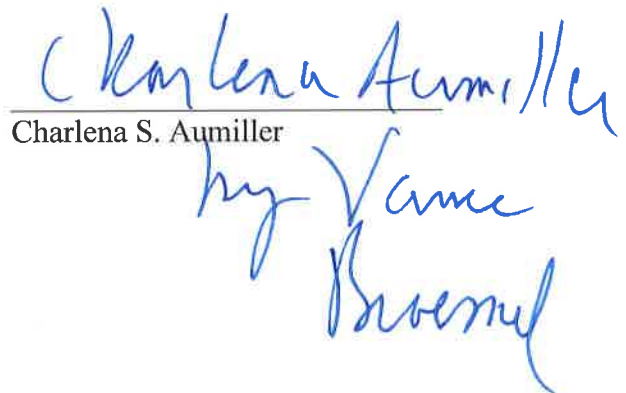 Charlena Aumiller
Charlena S. Aumiller
by Vance
Broemel